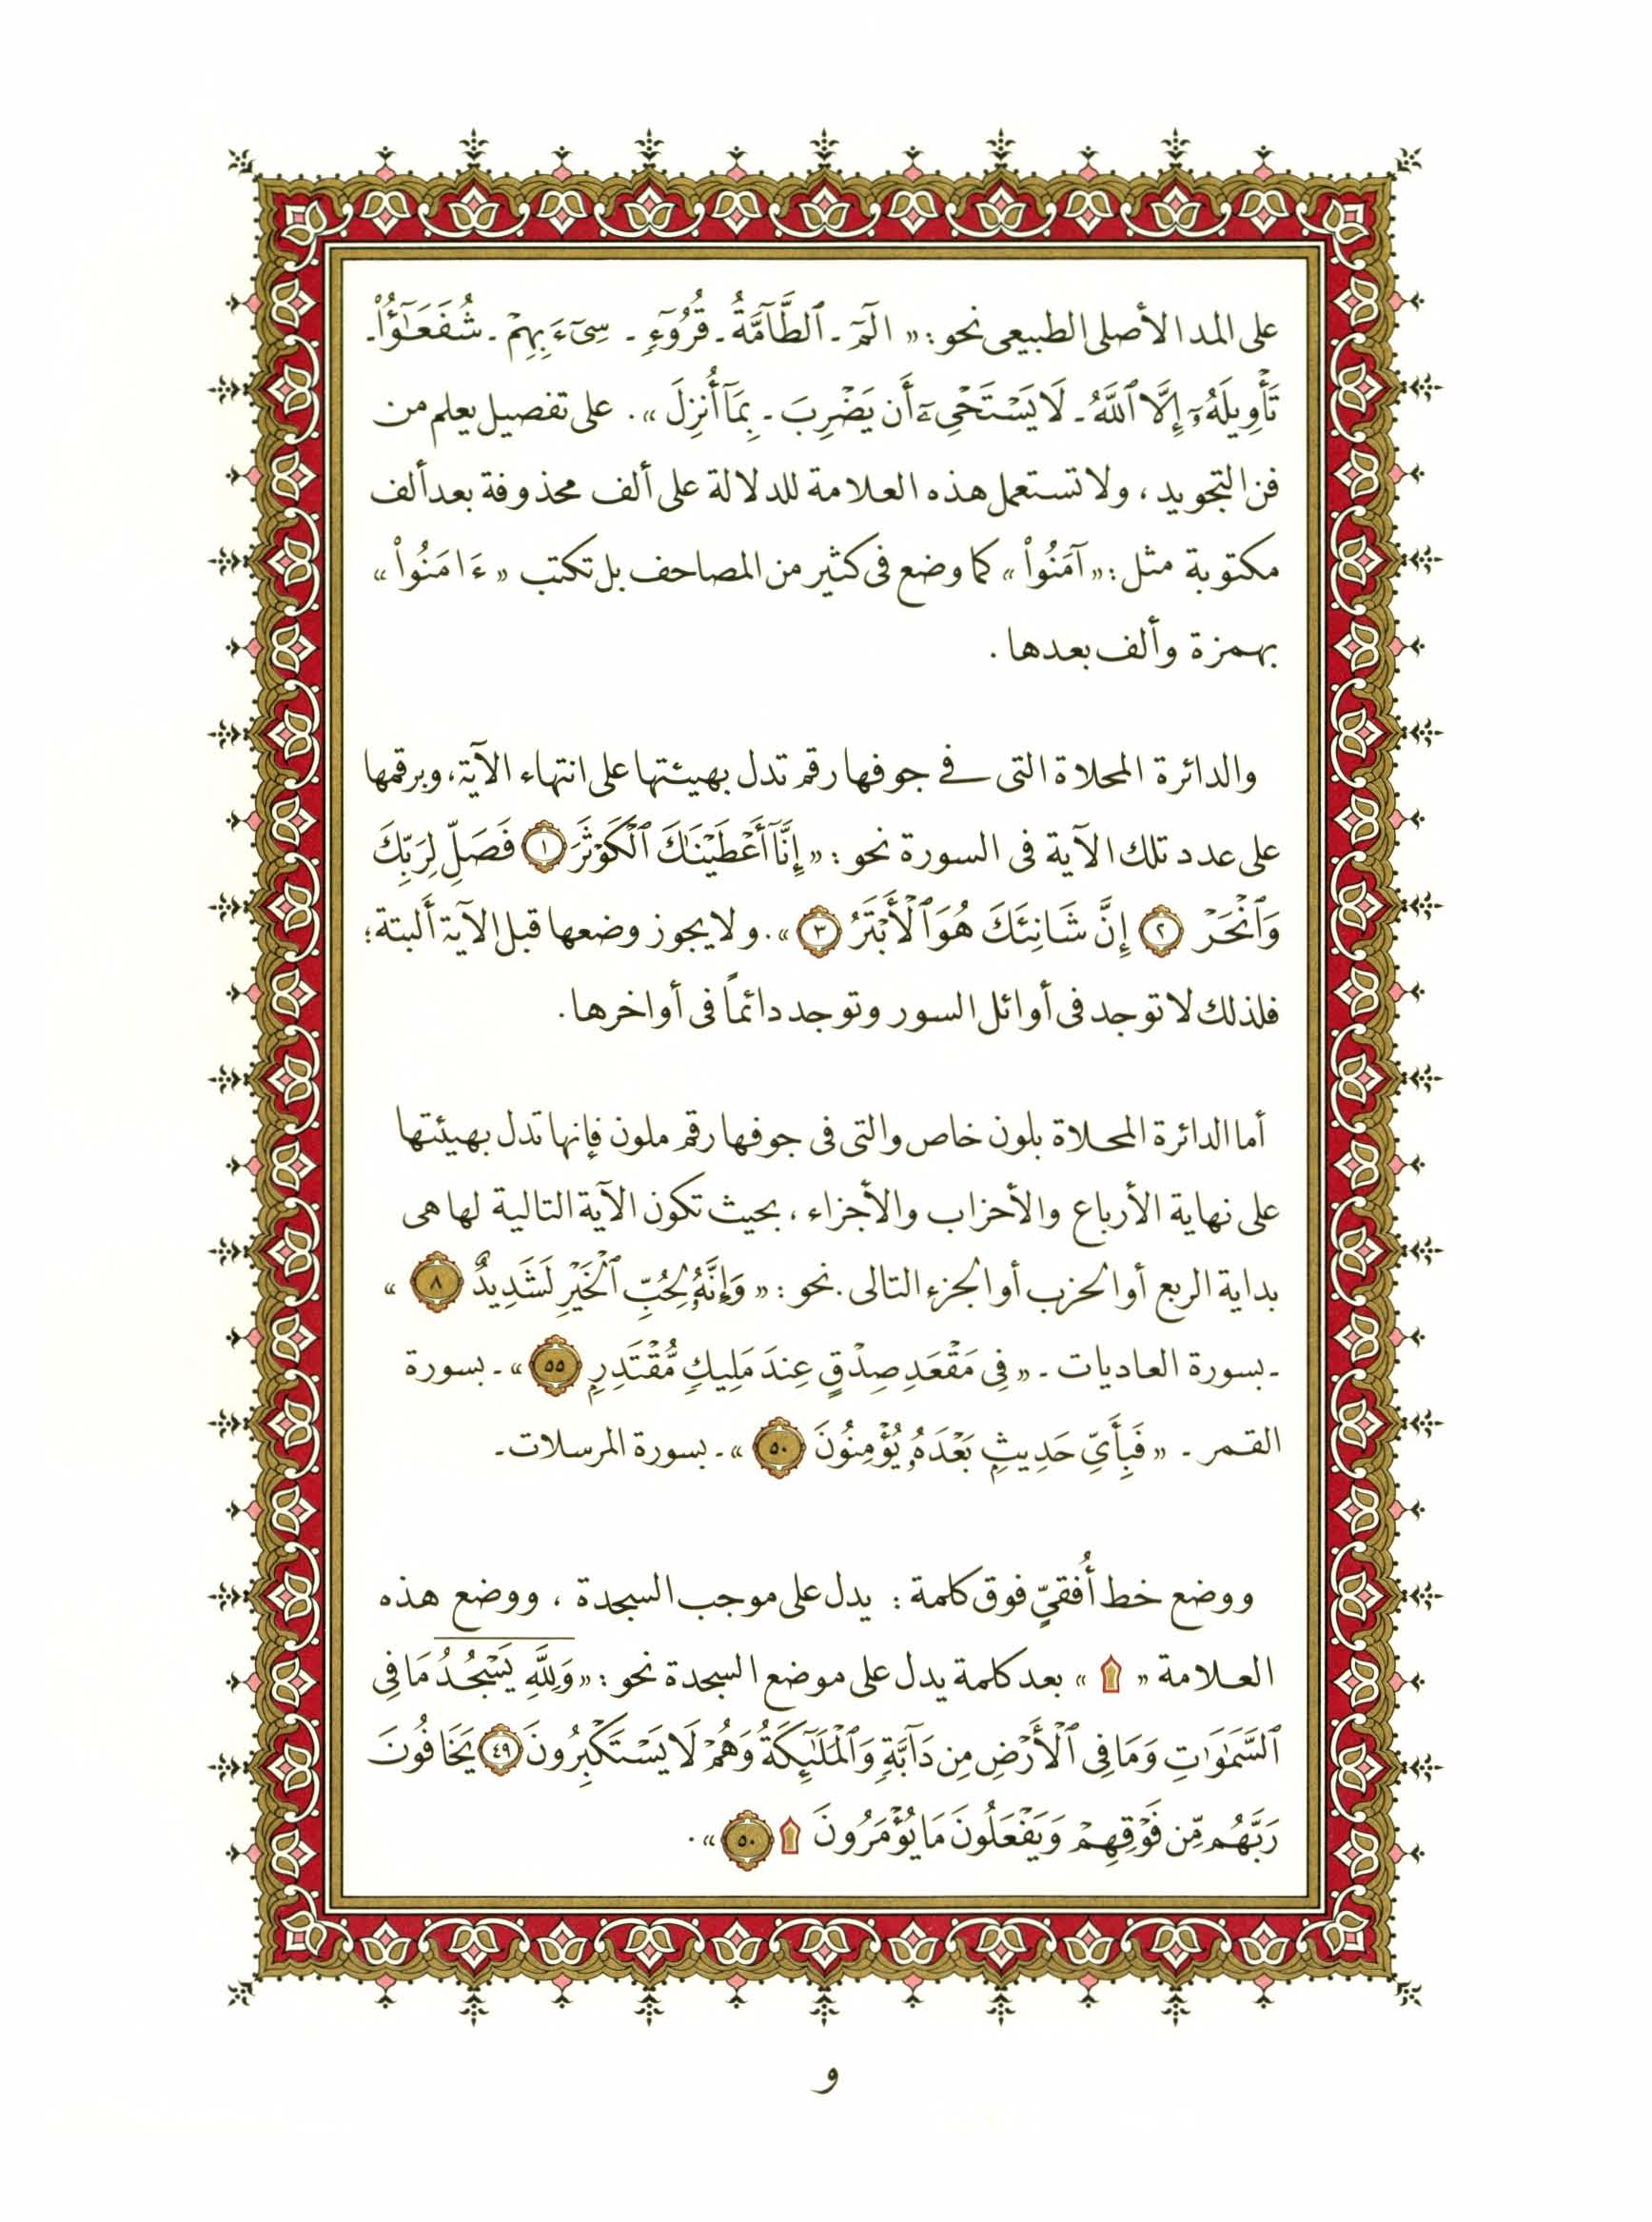 على المد الأصلى الطبيعى نحو : « الٓمٓ ـ ٱلطَّآمَّةُ ـ قُرُوٓءٍ ـ سِىٓءَ بِهِمْ ـ شُفَعَٰٓؤُاْ ـ
تَأْوِيلَهُۥٓ إِلَّا ٱللَّهُ ـ لَا يَسْتَحْىِۦٓ أَن يَضْرِبَ ـ بِمَآ أُنزِلَ » . على تفصيل يعلم من
فن التجويد ، ولا تستعمل هذه العلامة للدلالة على ألف محذوفة بعد ألف
مكتوبة مثل : « آمَنُواْ » كما وضع فى كثير من المصاحف بل تكتب « ءَامَنُواْ »
بهمزة وألف بعدها .
والدائرة المحلاة التى فى جوفها رقم تدل بهيئتها على انتهاء الآية ، وبرقمها
على عدد تلك الآية فى السورة نحو : « إِنَّآ أَعْطَيْنَٰكَ ٱلْكَوْثَرَ ١ فَصَلِّ لِرَبِّكَ
وَٱنْحَرْ ٢ إِنَّ شَانِئَكَ هُوَ ٱلْأَبْتَرُ ٣ » . ولا يجوز وضعها قبل الآية ألبتة ؛
فلذلك لا توجد فى أوائل السور وتوجد دائماً فى أواخرها .
أما الدائرة المحلاة بلون خاص والتى فى جوفها رقم ملون فإنها تدل بهيئتها
على نهاية الأرباع والأحزاب والأجزاء ، بحيث تكون الآية التالية لها هى
بداية الربع أو الحزب أو الجزء التالى . نحو : « وَإِنَّهُۥ لِحُبِّ ٱلْخَيْرِ لَشَدِيدٌ ٨ »
ـ بسورة العاديات ـ « فِى مَقْعَدِ صِدْقٍ عِندَ مَلِيكٍ مُّقْتَدِرٍ ٥٥ » ـ بسورة
القمر ـ « فَبِأَىِّ حَدِيثٍ بَعْدَهُۥ يُؤْمِنُونَ ٥٠ » ـ بسورة المرسلات ـ
ووضع خط أُفقىٍّ فوق كلمة : يدل على موجب السجدة ، ووضع هذه
العلامة « ۩ » بعد كلمة يدل على موضع السجدة نحو : « وَلِلَّهِ يَسْجُدُ مَا فِى
ٱلسَّمَٰوَٰتِ وَمَا فِى ٱلْأَرْضِ مِن دَآبَّةٍ وَٱلْمَلَٰٓئِكَةُ وَهُمْ لَا يَسْتَكْبِرُونَ ٤٩ يَخَافُونَ
رَبَّهُم مِّن فَوْقِهِمْ وَيَفْعَلُونَ مَا يُؤْمَرُونَ ۩ ٥٠ » .
و